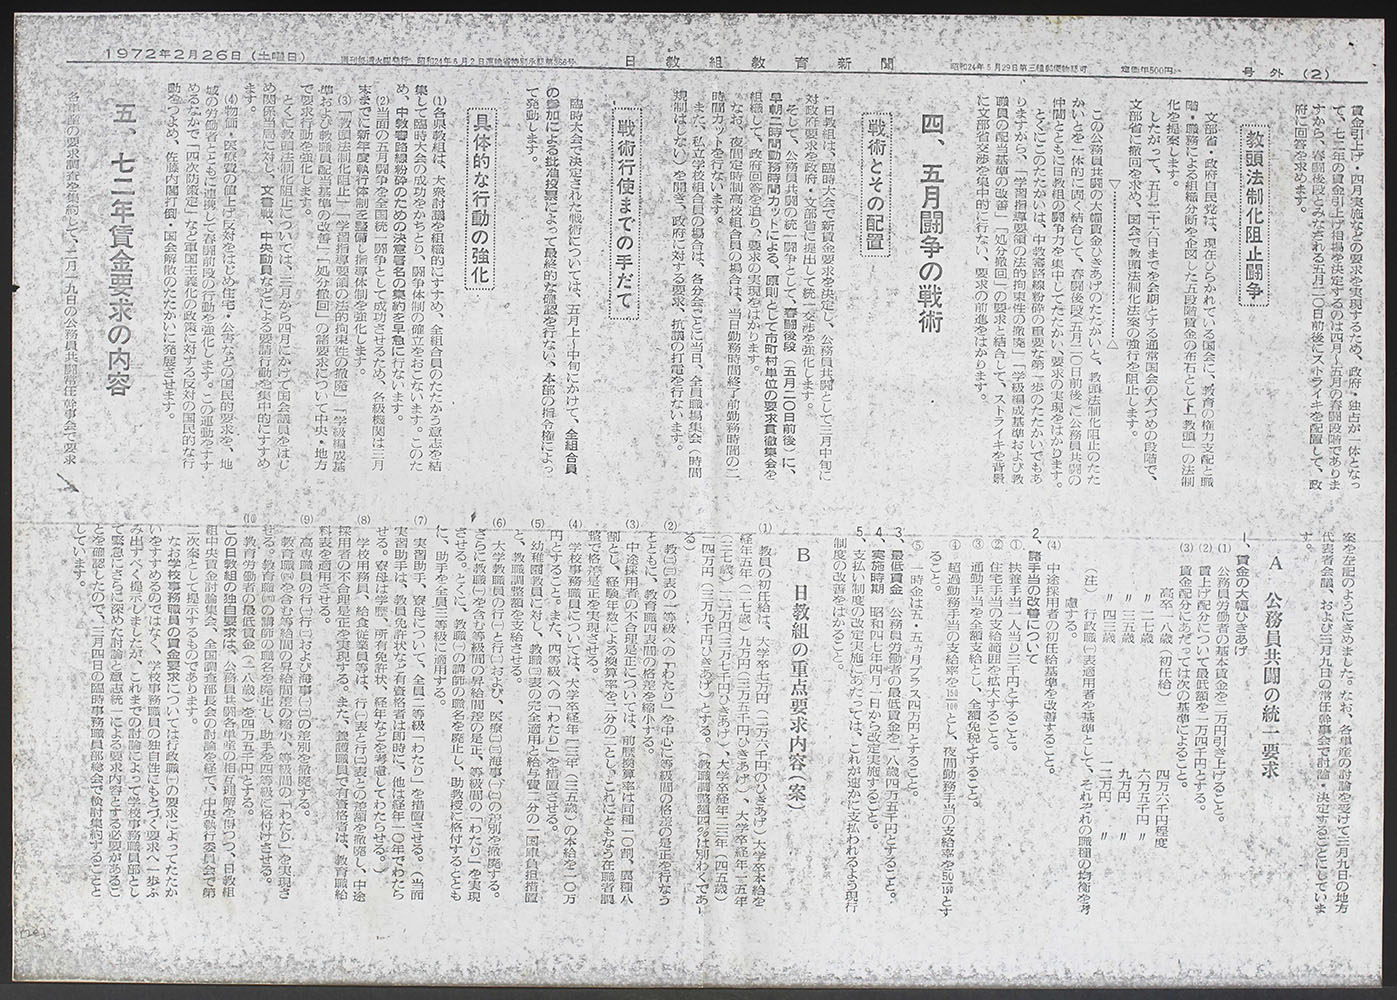 1972年2月26日(土曜日)
日教組教育新聞
昭和24年5月29日第三種郵便物認可
定価年500円
号外(2)
賃金引上げ・四月実施などの要求を実現するため、政府・独占が一体となっ
て、七二年の賃金引上げ相場を決定するのは四月～五月の春闘段階でありま
すから、春闘後段とみなされる五月二〇日前後にストライキを配置して、政
府に回答を求めます。
教頭法制化阻止闘争
文部省・政府自民党は、現在ひらかれている国会に、教育の権力支配と職
階・職務による組織分断を企図した五段階賃金の布石として「教頭」の法制
化を提案します。
したがって、五月二十六日までを会期とする通常国会の大づめの段階で、
文部省に撤回を求め、国会で教頭法制化法案の強行を阻止します。
この公務員共闘の大幅賃金ひきあげのたたかいと、教頭法制化阻止のたた
かいとを一体的に固く結合して、春闘後段(五月二〇日前後)に公務員共闘の
仲間とともに日教組の闘争力を集中してたたかい、要求の実現をはかります。
とくにこのたたかいは、中教審路線粉砕の重要な第一歩のたたかいでもあ
りますから、「学習指導要領の法的拘束性の撤廃」「学級編成基準および教
職員の配当基準の改善」「処分撤回」の要求と結合して、ストライキを背景
に文部省交渉を集中的に行ない、要求の前進をはかります。
四、五月闘争の戦術
戦術とその配置
日教組は、臨時大会で新賃金要求を決定し、公務員共闘として三月中旬に
対政府要求を政府・文部省に提出して統一交渉を強化します。
そして、公務員共闘の統一闘争として、春闘後段(五月二〇日前後)に、
早朝二時間勤務時間カットによる、原則として市町村単位の要求貫徹集会を
組織して、政府回答を迫り、要求の実現をはかります。
なお、夜間定時制高校組合員の場合は、当日勤務時間終了前勤務時間の二
時間カットを行ないます。
また、私立学校組合員の場合は、各分会ごとに当日、全員職場集会(時間
規制はしない)を開き、政府に対する要求、抗議の打電を行ないます。
戦術行使までの手だて
臨時大会で決定された戦術については、五月上～中旬にかけて、全組合員
の参加による批准投票によって最終的な確認を行ない、本部の指令権によっ
て発動します。
具体的な行動の強化
(1) 各県教組は、大衆討議を組織的にすすめ、全組合員のたたかう意志を結
集して臨時大会の成功をかちとり、闘争体制の確立をおこないます。このた
め、中教審路線粉砕のための決意署名の集約を早急に行ないます。
(2) 当面の五月闘争を全国統一闘争として成功させるため、各級機関は三月
末までに新年度執行体制を整備し指導体制を強化します。
(3) 「教頭法制化阻止」「学習指導要領の法的拘束性の撤廃」「学級編成基
準および教職員配当基準の改善」「処分撤回」の諸要求について中央・地方
で要求行動を強化します。
とくに教頭法制化阻止については、三月から四月にかけて国会議員をはじ
め関係当局に対し、文書戦、中央動員などによる要請行動を集中的にすすめ
ます。
(4) 物価・医療費の値上げ反対をはじめ住宅・公害などの国民的要求を、地
域の労働者とともに連携して春闘前段の行動を強化します。この運動をすす
めるなかで「四次防策定」など軍国主義化の政策に対する反対の国民的な行
動をつよめ、佐藤内閣打倒・国会解散のたたかいに発展させます。
五、七二年賃金要求の内容
各単産の要求調査を集約して、二月一九日の公務員共闘常任幹事会で要求
案を左記のようにきめました。なお、各単産の討論を受けて三月九日の地方
代表者会議、および三月九日の常任幹事会で討論・決定することにしていま
す。
A 公務員共闘の統一要求
1、賃金の大幅ひきあげ
(1) 公務員労働者の基本賃金を二万円引き上げること。
(2) 賃上げ配分について最低額を一万四千円とする。
(3) 賃金配分にあたっては次の基準によること。
高卒一八歳(初任給) 四万六千円程度
〃 二七歳 六万五千円 〃
〃 三五歳 九万円 〃
〃 四三歳 一二万円 〃
(注) 行政職(一)表適用者を基準として、それぞれの職種の均衡を考
慮する。
(4) 中途採用者の初任給基準を改善すること。
2、諸手当の改善について
① 扶養手当一人当り三千円とすること。
② 住宅手当の支給範囲を拡大すること。
③ 通勤手当を全額支給とし、全額免税とすること。
④ 超過勤務手当の支給率を150/100とし、夜間勤務手当の支給率を50/150とす
ること。
⑤ 一時金は五・五ヵ月プラス四万円とすること。
3、最低賃金 公務員労働者の最低賃金を一八歳四万五千円とすること。
4、実施時期 昭和四七年四月一日から改定実施すること。
5、支払い制度の改定実施にあたっては、これが速かに支払われるよう現行
制度の改善をはかること。
B 日教組の重点要求内容(案)
(1) 教員の初任給は、大学卒七万円(二万六千円のひきあげ)大学卒本俸を
経年五年(二七歳)九万円(三万五千円ひきあげ)、大学卒経年一五年
(三七歳)一二万円(三万七千円ひきあげ)大学卒経年二三年(四五歳)
一四万円(三万九千円ひきあげ)とする。(教職調整額四%は別わくであ
る)
(2) 教(二)(三)表の一等級への「わたり」を中心に等級間の格差の是正を行なう
とともに、教育職四表間の格差を縮小する。
(3) 中途採用者の不合理是正については、前歴換算率は同種一〇割、異種八
割とし、経験年数による換算率を二分の一とし、これにともなう在職者調
整で格差是正を実現させる。
(4) 学校事務職員については、大学卒経年一三年(三五歳)の本給を一〇万
円とすること。また、四等級への「わたり」を措置させる。
(5) 幼稚園教員に対し、教職(三)表の完全適用と給与費二分の一国庫負担措置
と、教職調整額を支給させる。
(6) 大学教職員の行(一)と行(二)および、医療(二)(三)海事(一)(二)の差別を撤廃する。
さらに教職(一)を含む等級間の昇給間差の是正、等級間の「わたり」を実現
させる。とくに、教職(一)の講師の職名を廃止し、助教授に格付するととも
に、助手を全員三等級に適用する。
(7) 実習助手、寮母について、全員二等級「わたり」を措置させる。(当面
実習助手は、教員免許状など有資格者は即時に、他は経年一〇年でわたら
せる。寮母は学歴、所有免許状、経年などを考慮してわたらせる。)
(8) 学校用務員、給食従業員等は、行(一)表と行(二)表との差額を撤廃し、中途
採用者の不合理是正を実現する。また、養護職員で有資格者は、教育職給
料表を適用させる。
(9) 高専職員の行(一)行(二)および海事(一)(二)の差別を撤廃する。
教育職(四)を含む等級間の昇給間差の縮小、等級間の「わたり」を実現さ
せる。教育職(四)の講師の職名を廃止し、助手を四等級に格付けさせる。
(10) 教育労働者の最低賃金(一八歳)を四万五千円とする。
この日教組の独自要求は、公務員共闘各単産の相互理解を得つつ、日教組
組中央賃金討論集会、全国調査部長会の討論を経て、中央執行委員会で第
二次案として提示するものであります。
なお学校事務職員の賃金要求については行政職(一)の要求によってたたか
いをすすめるのではなく、学校事務職員の独自性にもとづく要求へ一歩ふ
み出すべく提示しましたが、これまでの討論によって学校事務職員部とし
て緊急にさらに深めた討論と意志統一による要求内容とする必要があるこ
とを確認したので、三月四日の臨時事務職員部総会で検討集約することと
しています。